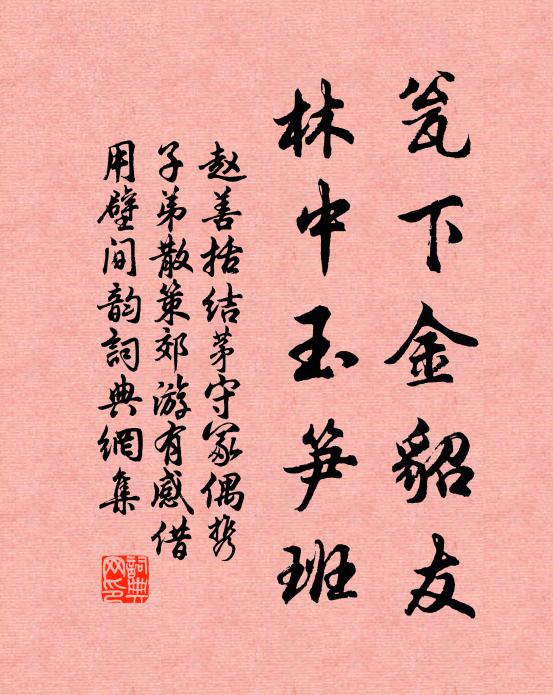 瓮下金貂友
林中玉笋班
赵善括结茅守冢偶携
子弟散策郊游有感借
用壁间韵詞典網集
詞典网印